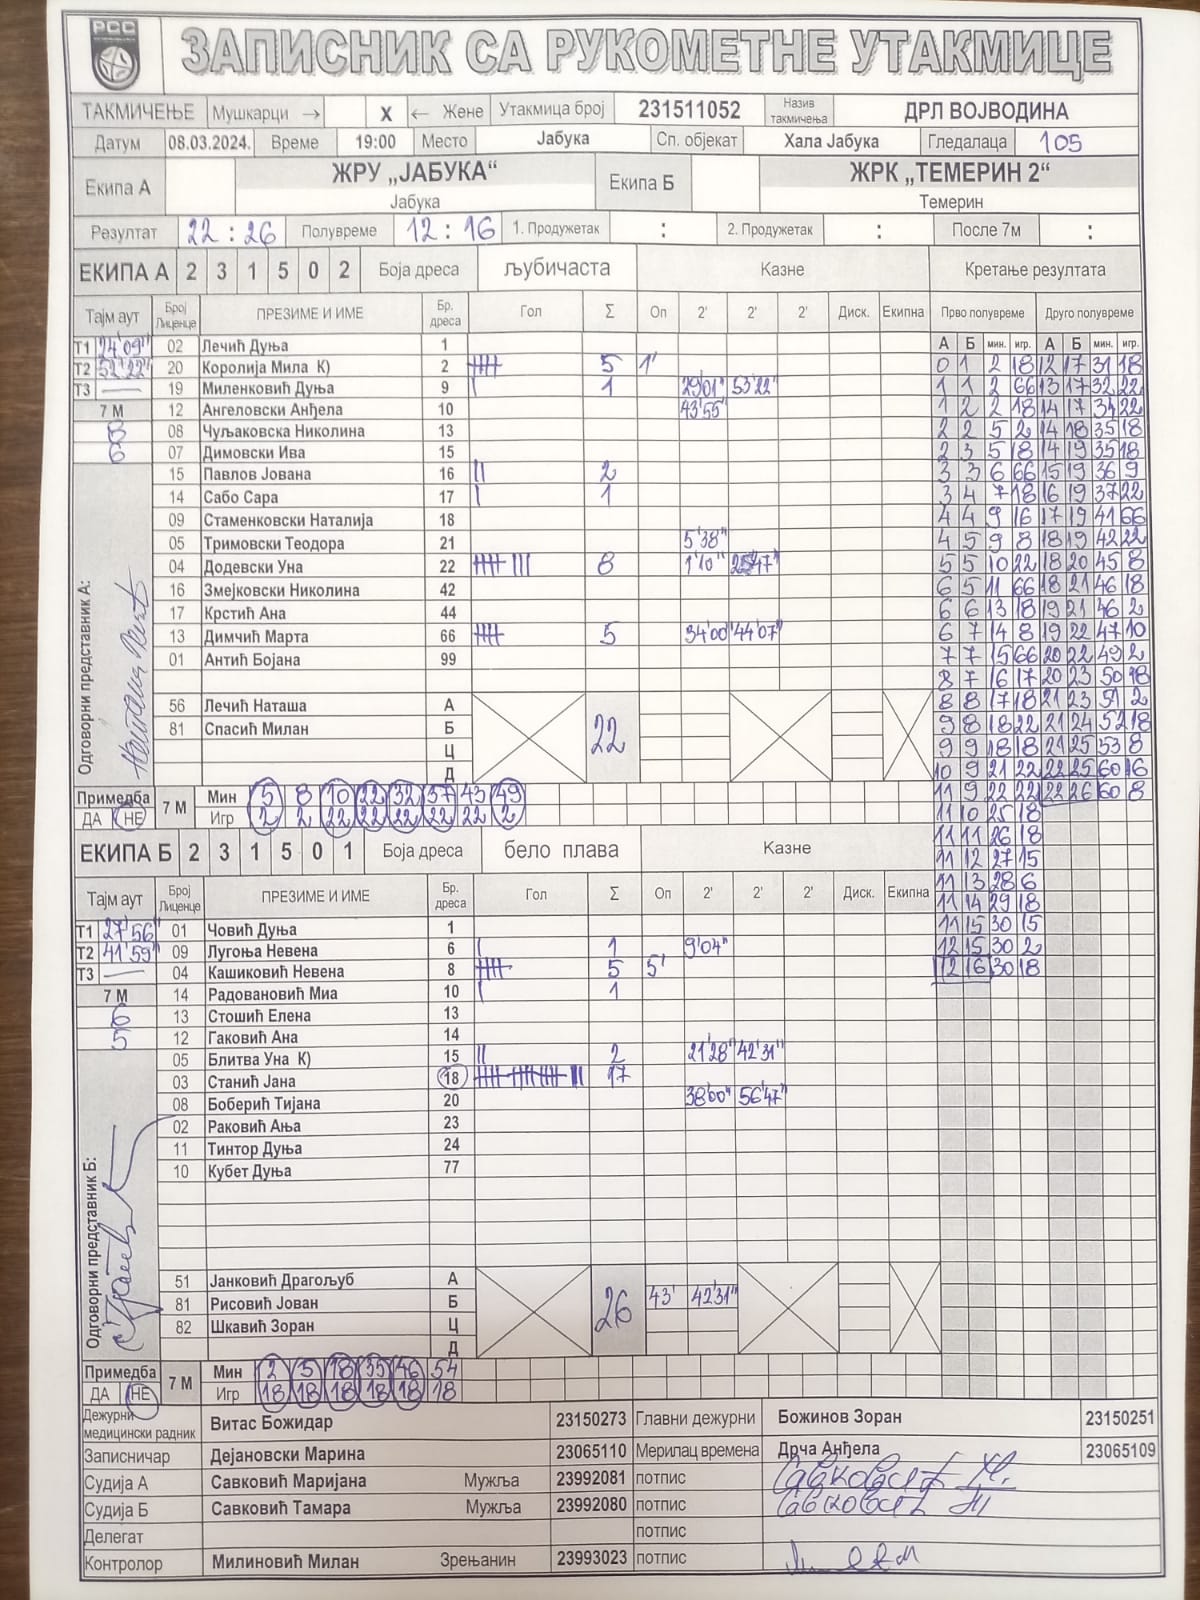 РСС
ЗАПИСНИК СА РУКОМЕТНЕ УТАКМИЦЕ
ТАКМИЧЕЊЕ Мушкарци → X ← Жене Утакмица број 231511052 Назив такмичења ДРЛ ВОЈВОДИНА
Датум 08.03.2024. Време 19:00 Место Јабука Сп. објекат Хала Јабука Гледалаца 105
Екипа А ЖРУ „ЈАБУКА“ Екипа Б ЖРК „ТЕМЕРИН 2“
Јабука Темерин
Резултат 22 : 26 Полувреме 12 : 16 1. Продужетак : 2. Продужетак : После 7м :
ЕКИПА А 2 3 1 5 0 2 Боја дреса љубичаста Казне Кретање резултата
Тајм аут Број Лиценце ПРЕЗИМЕ И ИМЕ Бр. дреса Гол Σ Оп 2' 2' 2' Диск. Екипна Прво полувреме Друго полувреме
Т1 24'09" 02 Лечић Дуња 1 А Б мин. игр. А Б мин. игр.
Т2 52'22" 20 Королија Мила К) 2 5 1' 0 1 2 18 12 17 31 18
Т3 — 19 Миленковић Дуња 9 1 29'01" 53'22" 1 1 2 66 13 17 32 22
7 М 12 Ангеловски Анђела 10 43'55" 1 2 2 18 14 17 34 22
8 08 Чуљаковска Николина 13 2 2 5 2 14 18 35 18
6 07 Димовски Ива 15 2 3 5 18 14 19 35 18
15 Павлов Јована 16 2 3 3 6 66 15 19 36 9
14 Сабо Сара 17 1 3 4 7 18 16 19 37 22
09 Стаменковски Наталија 18 4 4 9 16 17 19 41 66
05 Тримовски Теодора 21 5'38" 4 5 9 8 18 19 42 22
04 Додевски Уна 22 8 1'10" 25'47" 5 5 10 22 18 20 45 8
16 Змејковски Николина 42 6 5 11 66 18 21 46 18
17 Крстић Ана 44 6 6 13 18 19 21 46 2
13 Димчић Марта 66 5 34'00" 44'07" 6 7 14 8 19 22 47 10
01 Антић Бојана 99 7 7 15 66 20 22 49 2
8 7 16 17 20 23 50 18
56 Лечић Наташа А 8 8 17 18 21 23 51 2
81 Спасић Милан Б 22 9 8 18 22 21 24 52 18
Ц 9 9 18 18 21 25 53 8
Д 10 9 21 22 22 25 60 16
Одговорни представник А:
Примедба 7 М Мин 5 8 10 22 32 37 43 49 11 9 22 22 22 26 60 8
ДА НЕ Игр 2 2 22 22 22 22 22 2 11 10 25 18
ЕКИПА Б 2 3 1 5 0 1 Боја дреса бело плава Казне 11 11 26 18
11 12 27 15
Тајм аут Број Лиценце ПРЕЗИМЕ И ИМЕ Бр. дреса Гол Σ Оп 2' 2' 2' Диск. Екипна 11 13 28 6
11 14 29 18
Т1 27'56" 01 Човић Дуња 1 11 15 30 15
Т2 41'59" 09 Лугоња Невена 6 1 9'04" 12 15 30 2
Т3 — 04 Кашиковић Невена 8 5 5' 12 16 30 18
7 М 14 Радовановић Миа 10 1
6 13 Стошић Елена 13
5 12 Гаковић Ана 14
05 Блитва Уна К) 15 2 21'28" 42'31"
03 Станић Јана 18 17
08 Боберић Тијана 20 38'00" 56'47"
02 Раковић Ања 23
11 Тинтор Дуња 24
10 Кубет Дуња 77
Одговорни представник Б:
51 Јанковић Драгољуб А
81 Рисовић Јован Б 26 43' 42'31"
82 Шкавић Зоран Ц
Д
Примедба 7 М Мин 2 5 18 35 46 54
ДА НЕ Игр 18 18 18 18 18 18
Дежурни медицински радник Витас Божидар 23150273 Главни дежурни Божинов Зоран 23150251
Записничар Дејановски Марина 23065110 Мерилац времена Дрча Анђела 23065109
Судија А Савковић Маријана Мужља 23992081 потпис
Судија Б Савковић Тамара Мужља 23992080 потпис
Делегат потпис
Контролор Милиновић Милан Зрењанин 23993023 потпис